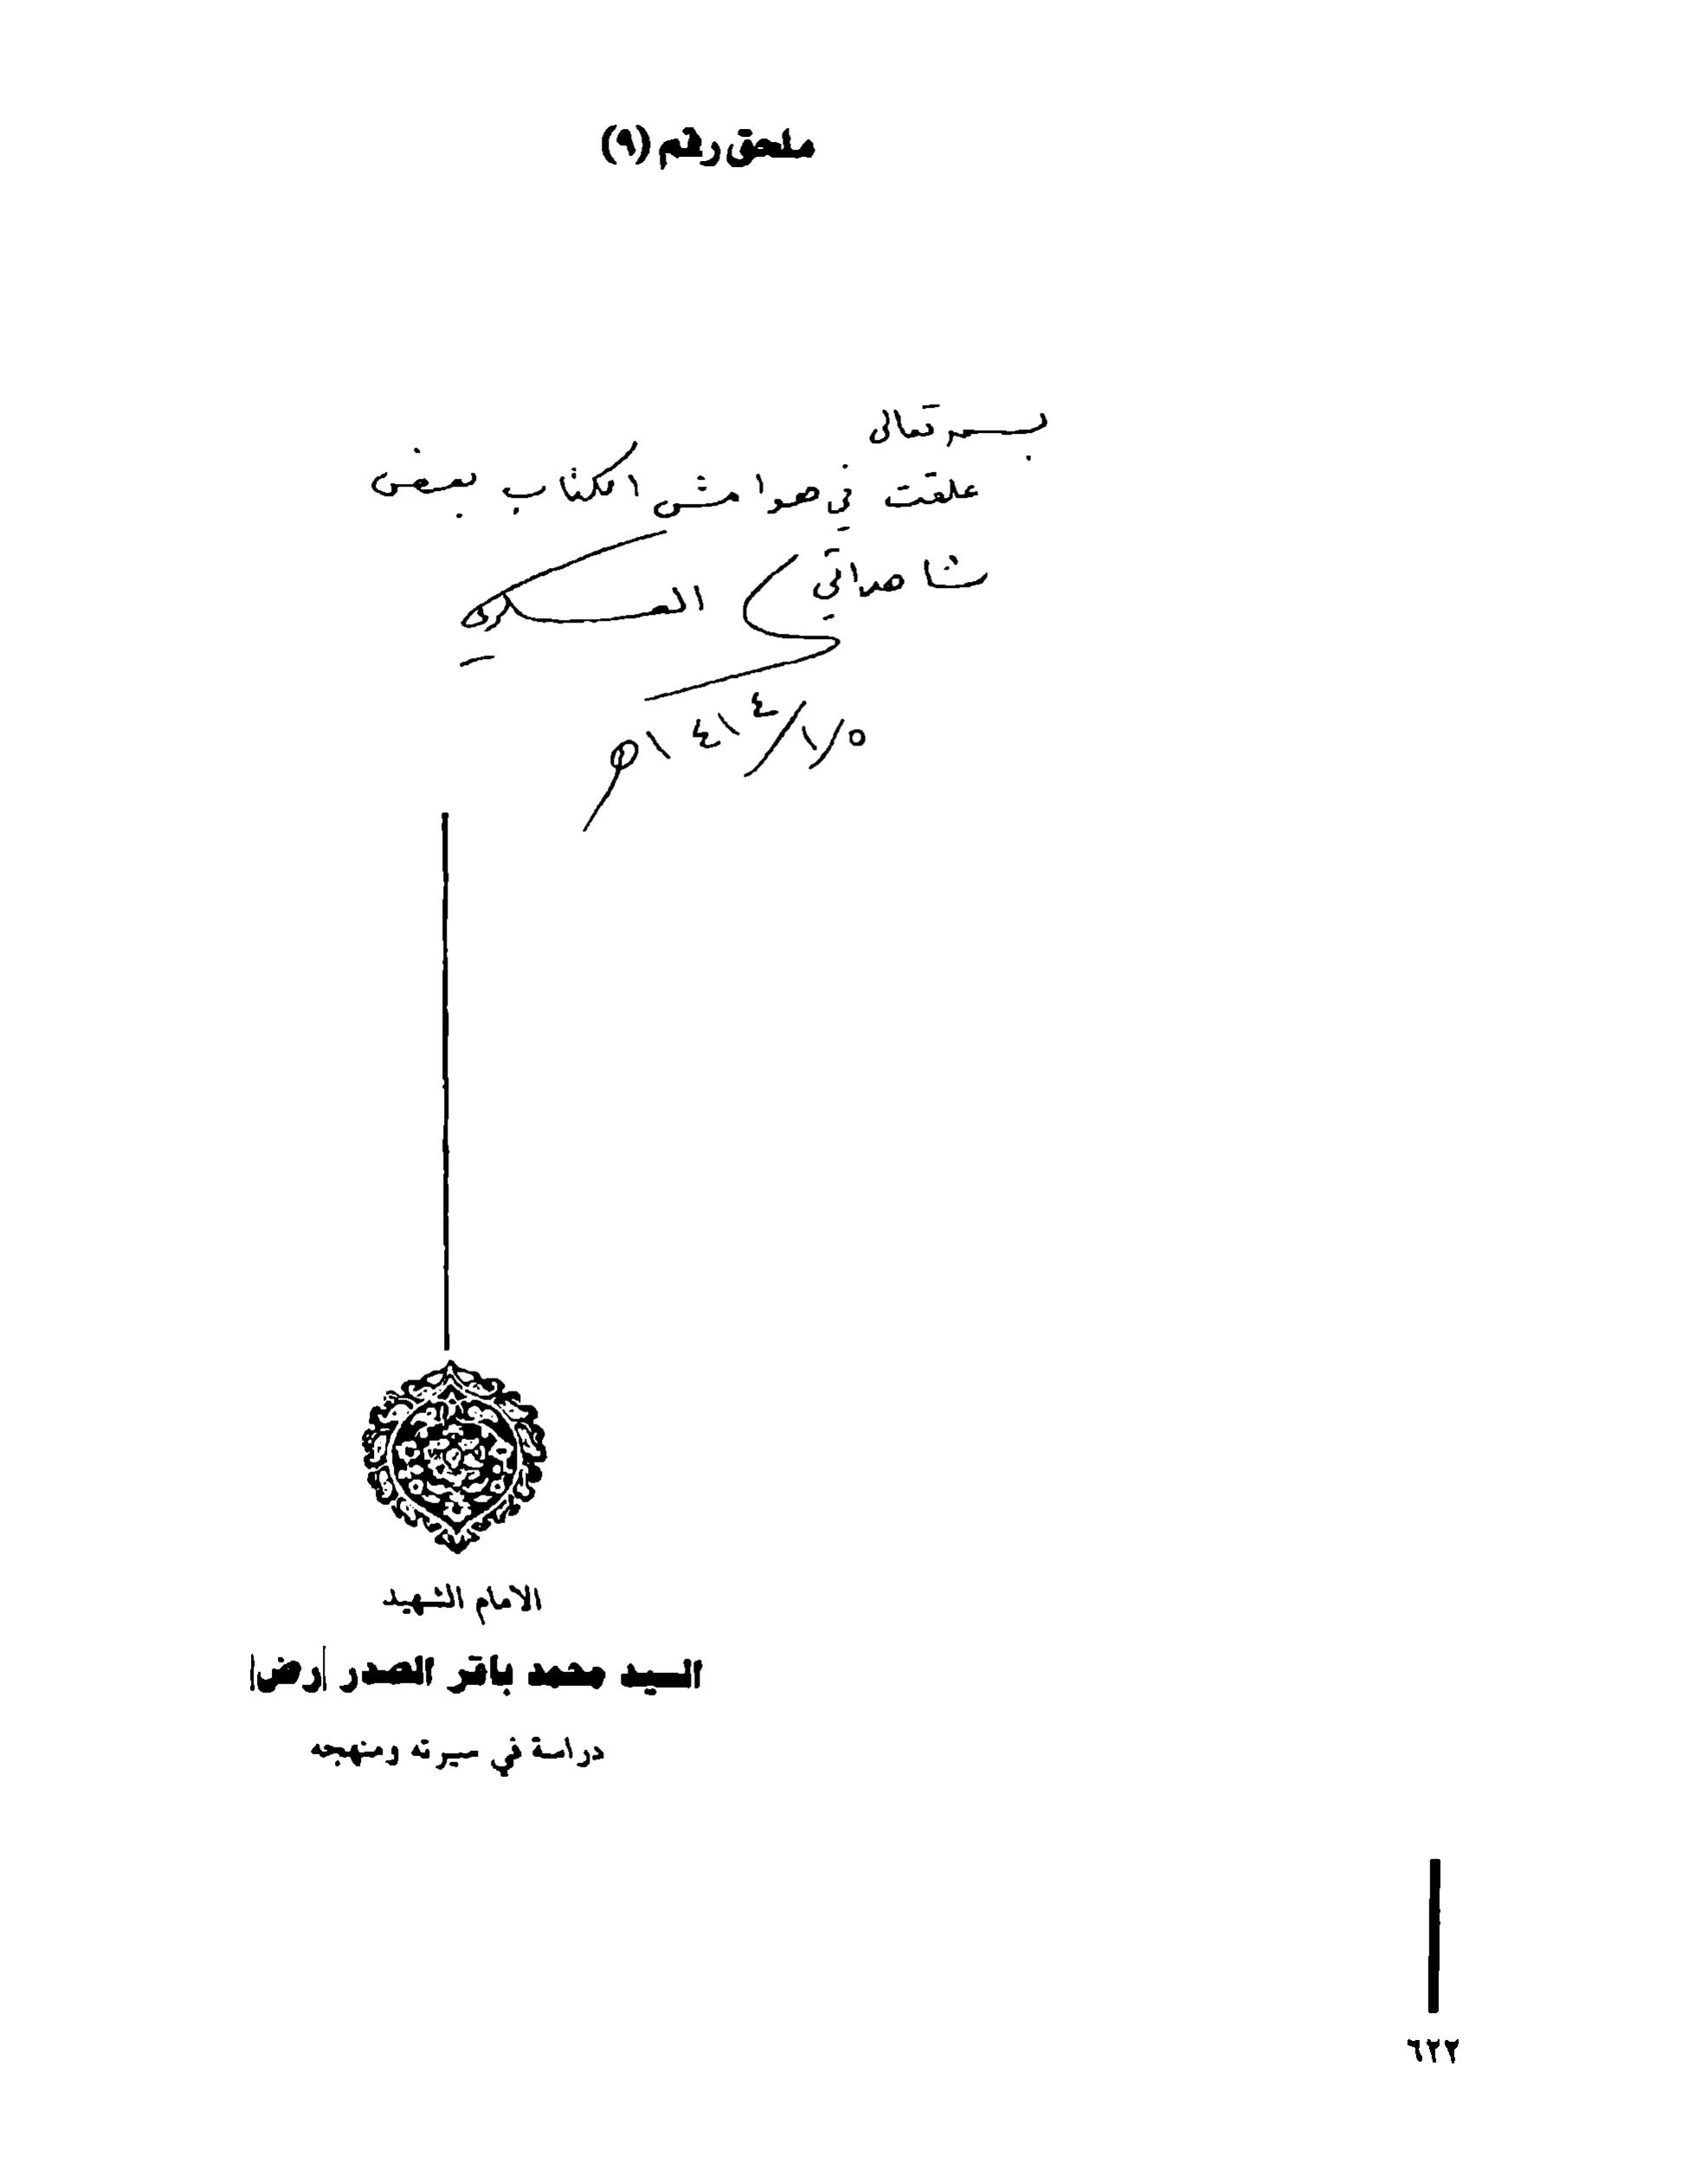 ملحق رقم (٩)
بسمه تعالى
علقت في هوامش الكتاب بعض
شاهداتي العسكري
٥/١/١٤١٤ه
الامام الشهيد
السيد محمد باقر الصدر |رض|
دراسة في سيرته ومنهجه
٦٢٢